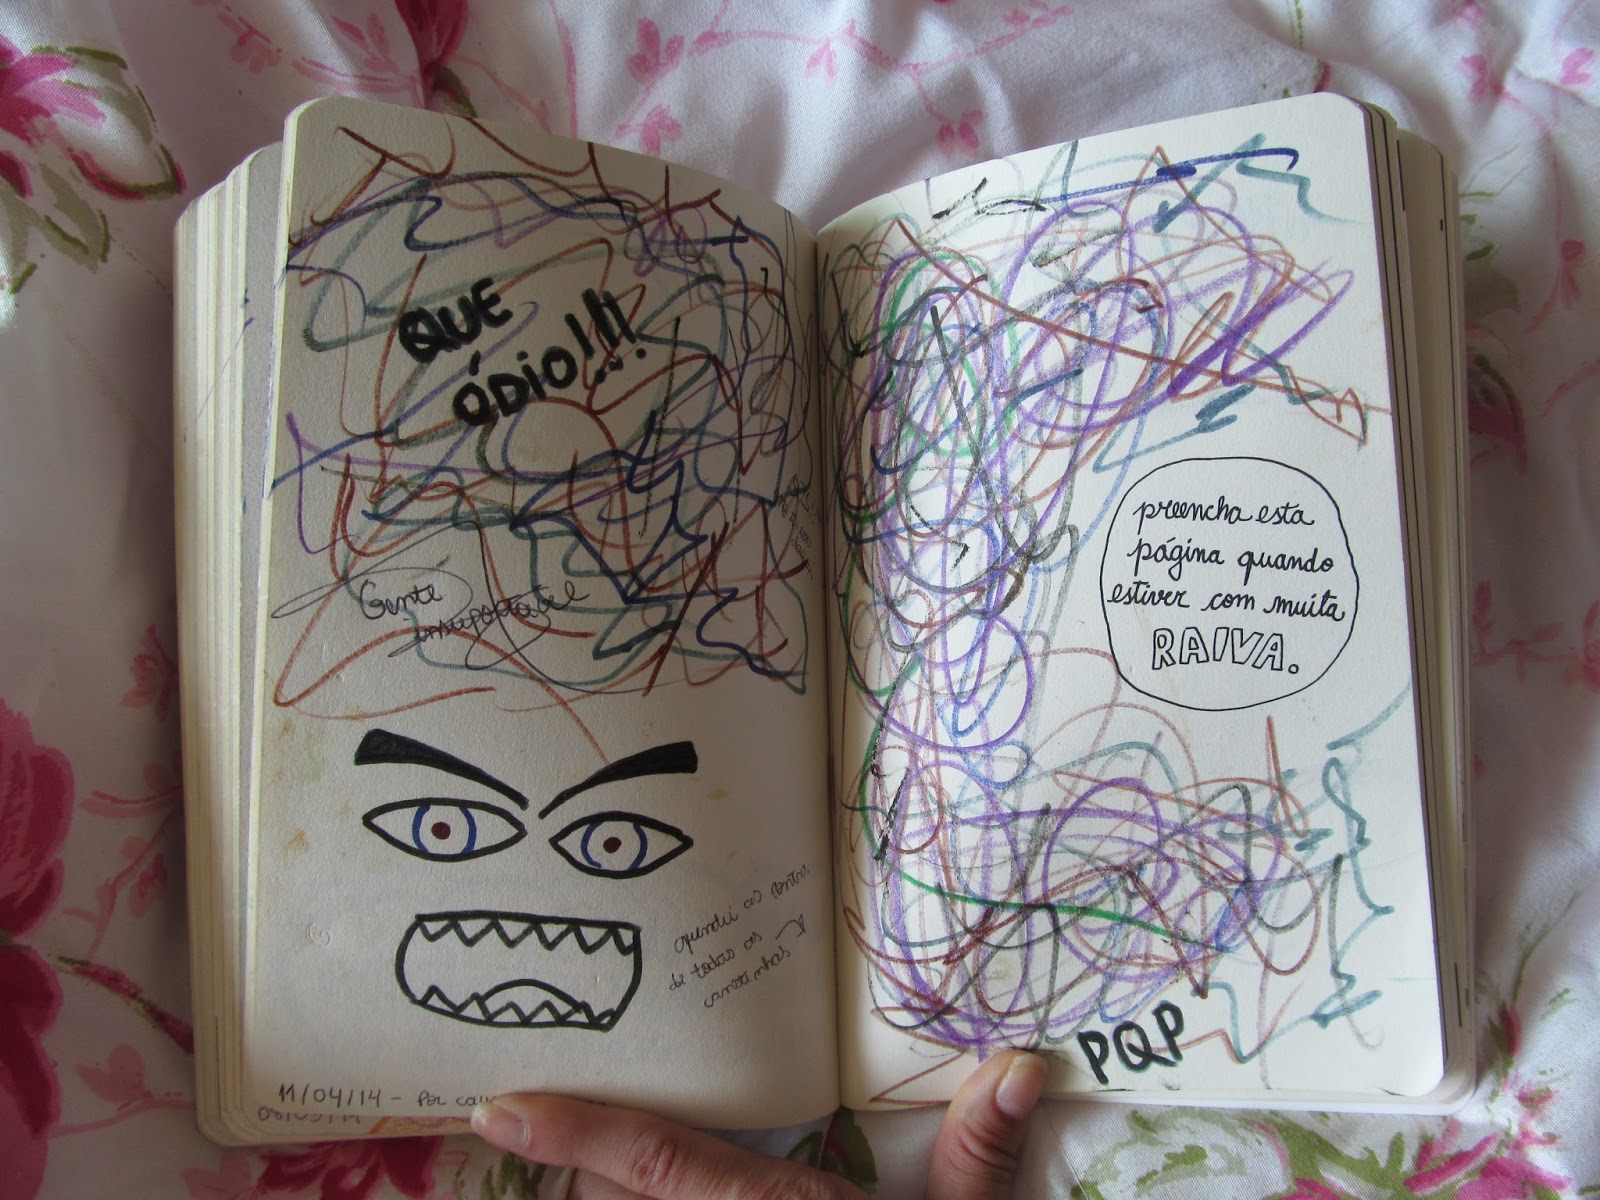 QUE
ÓDIO!!!
Gente
insuportável
de todas as
canetinhas
11/04/14 - Por
06/05/14
preencha esta
página quando
estiver com muita
RAIVA.
PQP